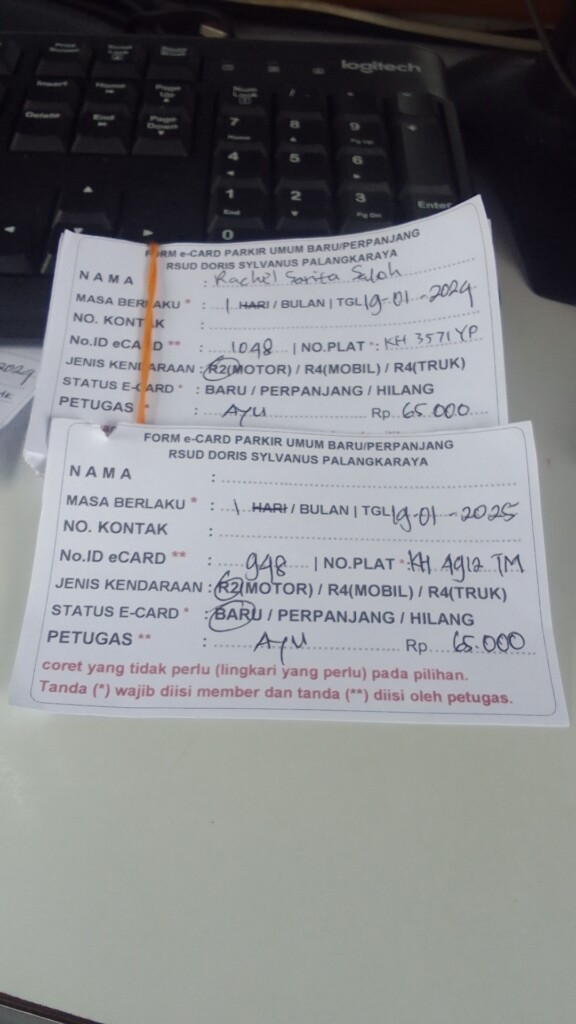 logitech
Insert
Home
Page Up
Delete
End
Page Down
Num Lock
/
7 Home
8
9 Pg Up
4
5
6
1 End
2
3 Pg Dn
Enter
0
FORM e-CARD PARKIR UMUM BARU/PERPANJANG
RSUD DORIS SYLVANUS PALANGKARAYA
NAMA : Rachel Sarita Saloh
MASA BERLAKU * : 1 HARI / BULAN | TGL 19-01-2024
NO. KONTAK :
No.ID eCARD ** : 1048 | NO.PLAT * : KH 3571 YP
JENIS KENDARAAN : R2(MOTOR) / R4(MOBIL) / R4(TRUK)
STATUS E-CARD * : BARU / PERPANJANG / HILANG
PETUGAS : AYU Rp. 65.000
FORM e-CARD PARKIR UMUM BARU/PERPANJANG
RSUD DORIS SYLVANUS PALANGKARAYA
NAMA :
MASA BERLAKU * : 1 HARI / BULAN | TGL 19-01-2025
NO. KONTAK :
No.ID eCARD ** : 948 | NO.PLAT * : KH 4912 TM
JENIS KENDARAAN : R2(MOTOR) / R4(MOBIL) / R4(TRUK)
STATUS E-CARD * : BARU / PERPANJANG / HILANG
PETUGAS ** : AYU Rp. 65.000
coret yang tidak perlu (lingkari yang perlu) pada pilihan.
Tanda (*) wajib diisi member dan tanda (**) diisi oleh petugas.